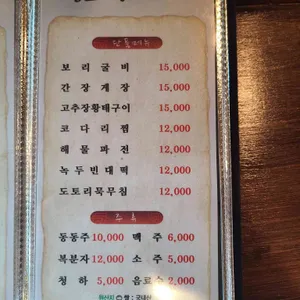 단품메뉴
보리굴비 15,000
간장게장 15,000
고추장황태구이 15,000
코다리찜 12,000
해물파전 12,000
녹두빈대떡 12,000
도토리묵무침 12,000
주류
동동주 10,000 맥주 6,000
복분자 12,000 소주 5,000
청하 5,000 음료수 2,000
원산지 쌀:국내산